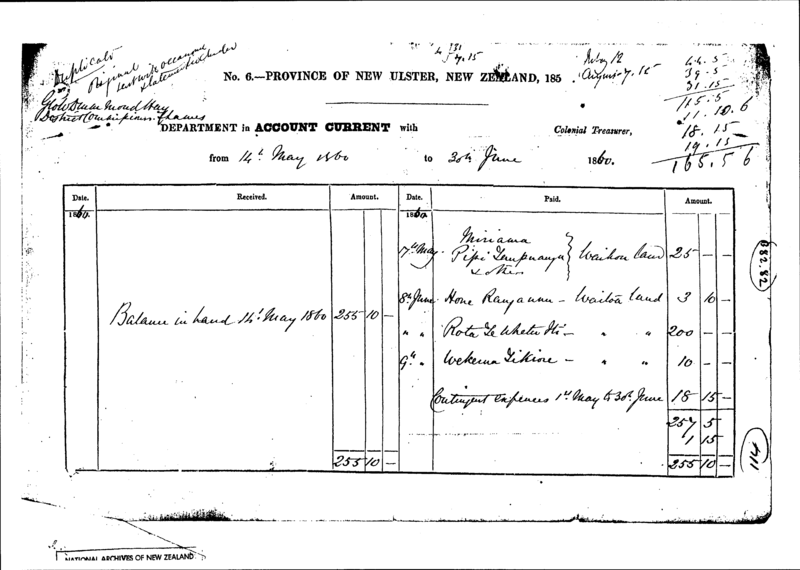 Duplicate
Original
sent with occasional
statement under
4 7.15
July 12
August 7. 15
66. 5
39. 5
31. 15
115. 5
11. 10. 6
18. 15
19. 15
165. 5 6
No. 6.—PROVINCE OF NEW ULSTER, NEW ZEALAND, 185
District Commissioner Thames
DEPARTMENT in ACCOUNT CURRENT with Colonial Treasurer,
from 14th May 1860 to 30th June 1860.
Date. Received. Amount. Date. Paid. Amount.
1860. 1860.
17th May Miriama
Pipi & others Waihou land 25 — —
8th June Hone Rangaunu — Waitoa land 3 10 —
Balance in hand 14th May 1860 255 10 —
" " Rota Te — " " 200 — —
9th " Wekena Tikiore — " " 10 — —
Contingent expences 1st May to 30th June 18 15 —
257 5
1 15
255 10 — 255 10 —
882.82
114
NATIONAL ARCHIVES OF NEW ZEALAND